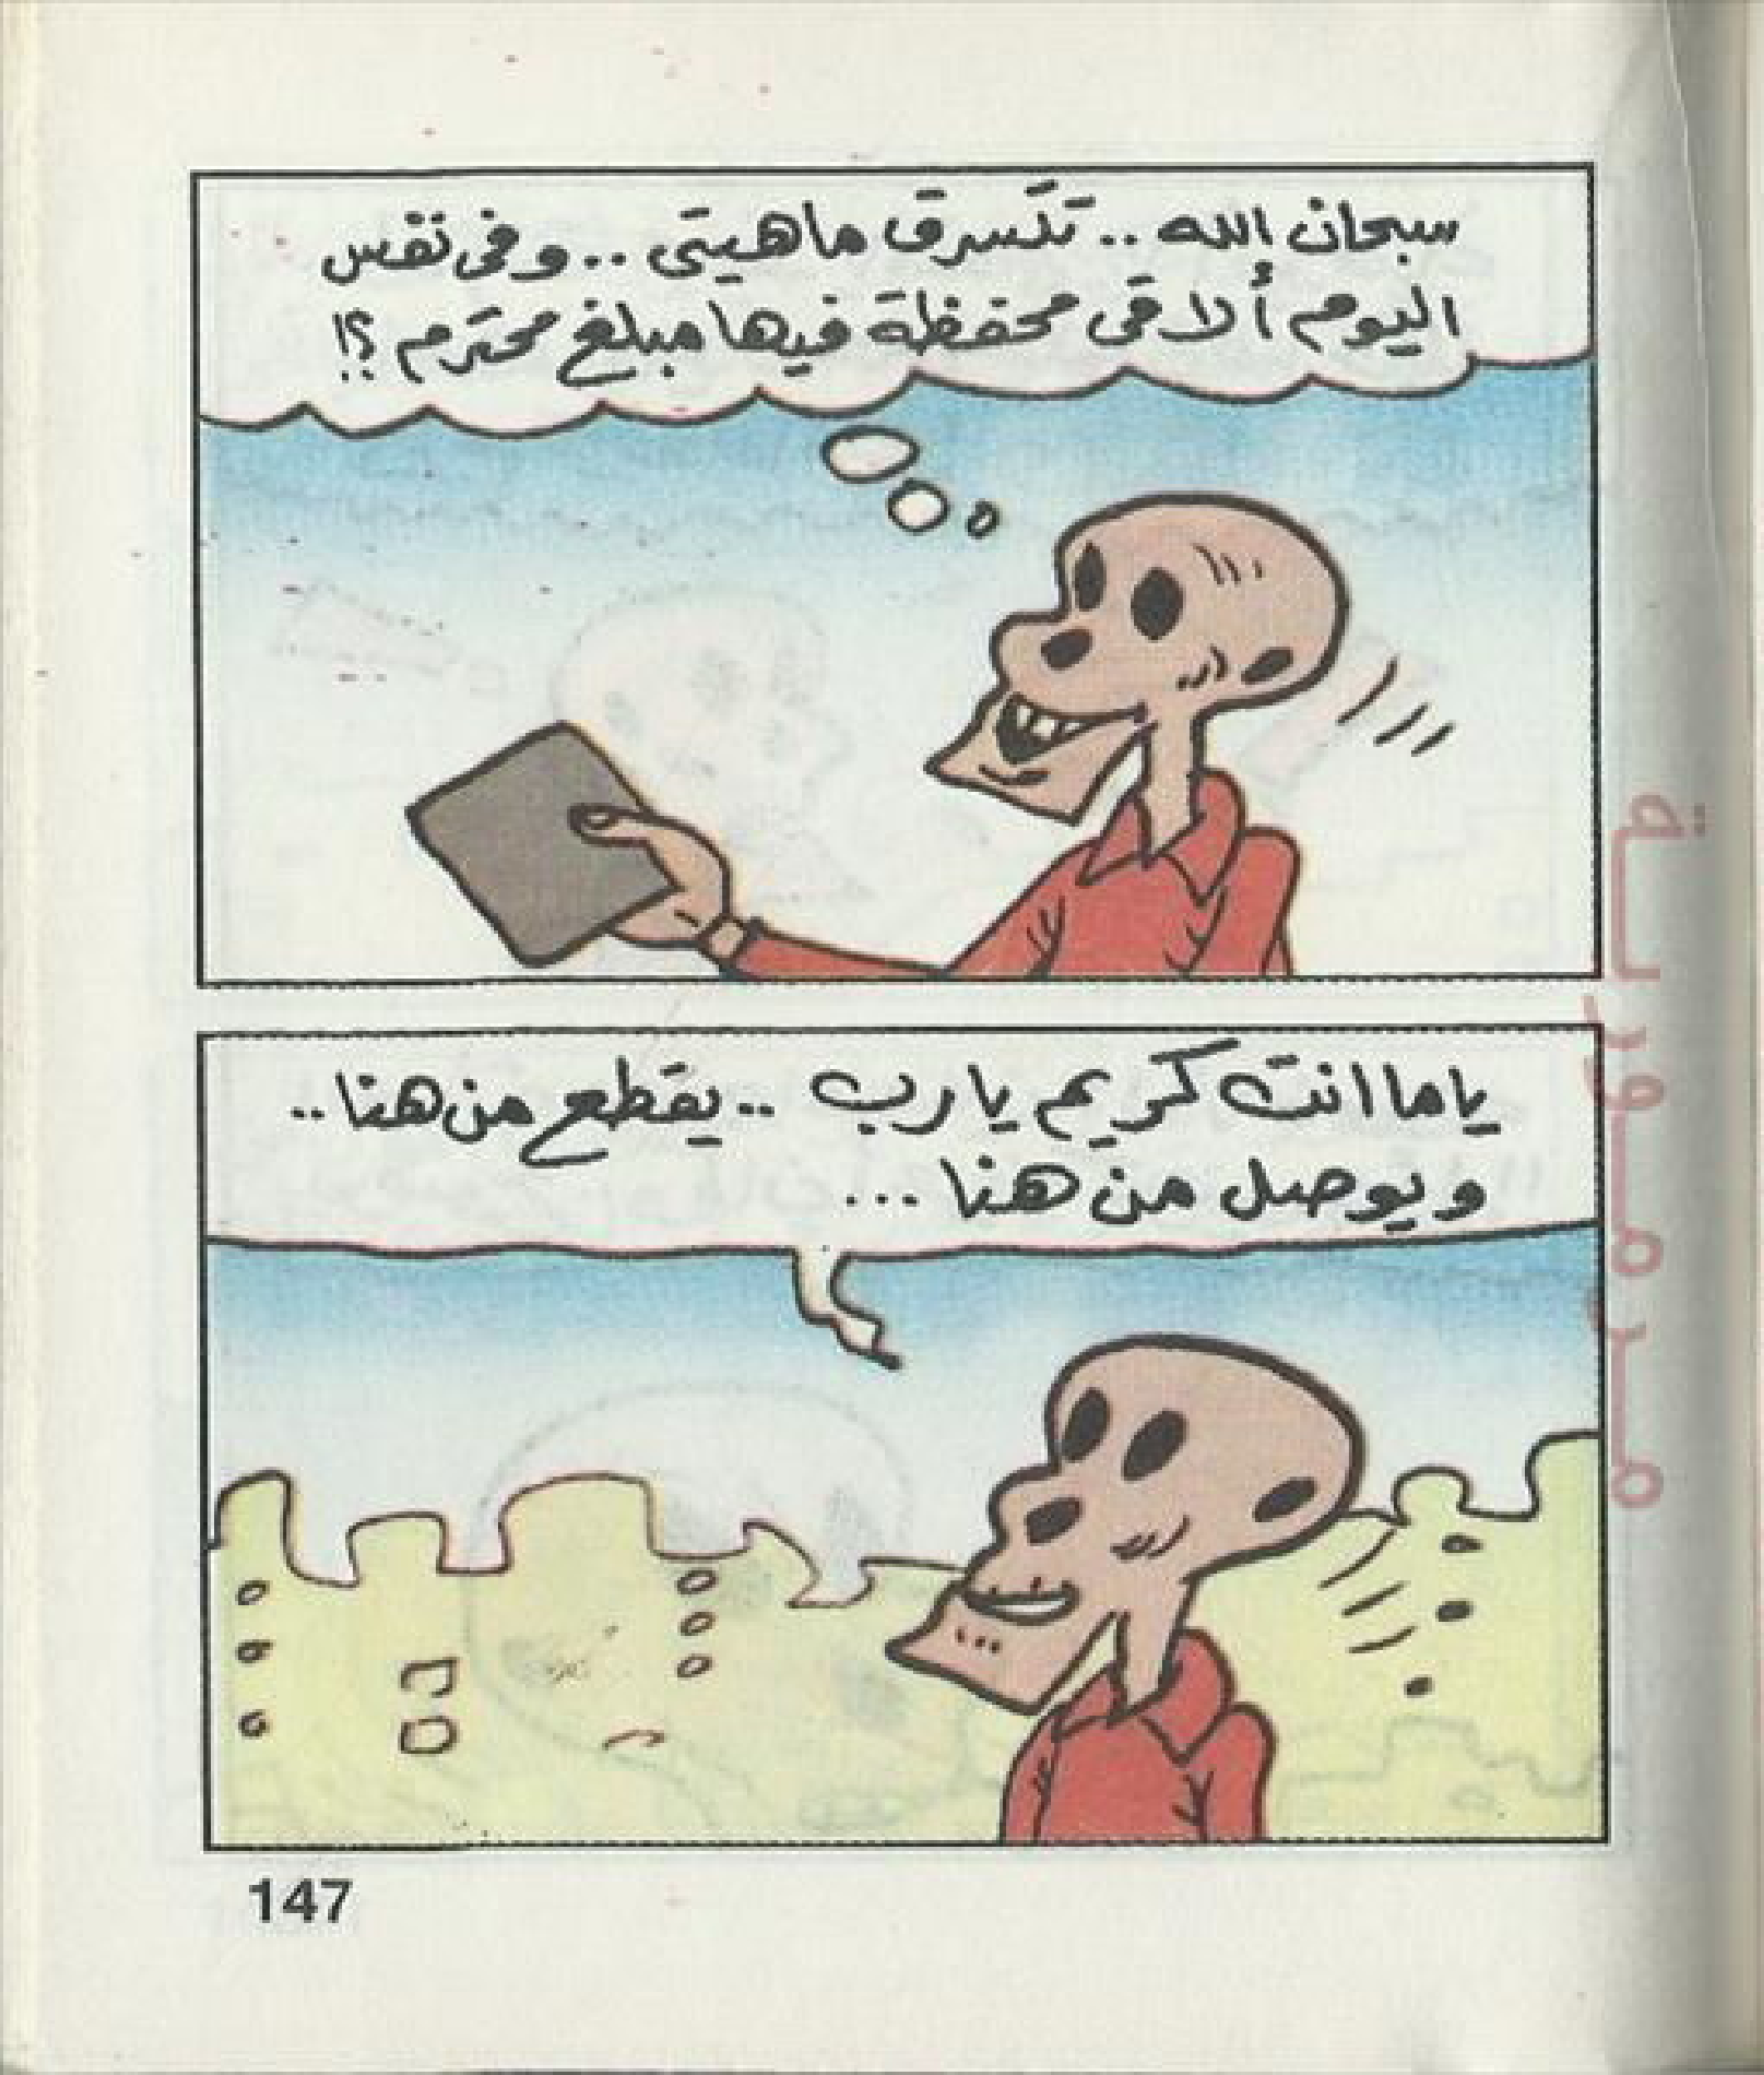 سبحان الله .. تتسرق ماهيتى .. وفى نفس
اليوم ألاقى محفظة فيها مبلغ محترم ؟!
ياما انت كريم يارب .. يقطع من هنا ..
ويوصل من هنا ...
147